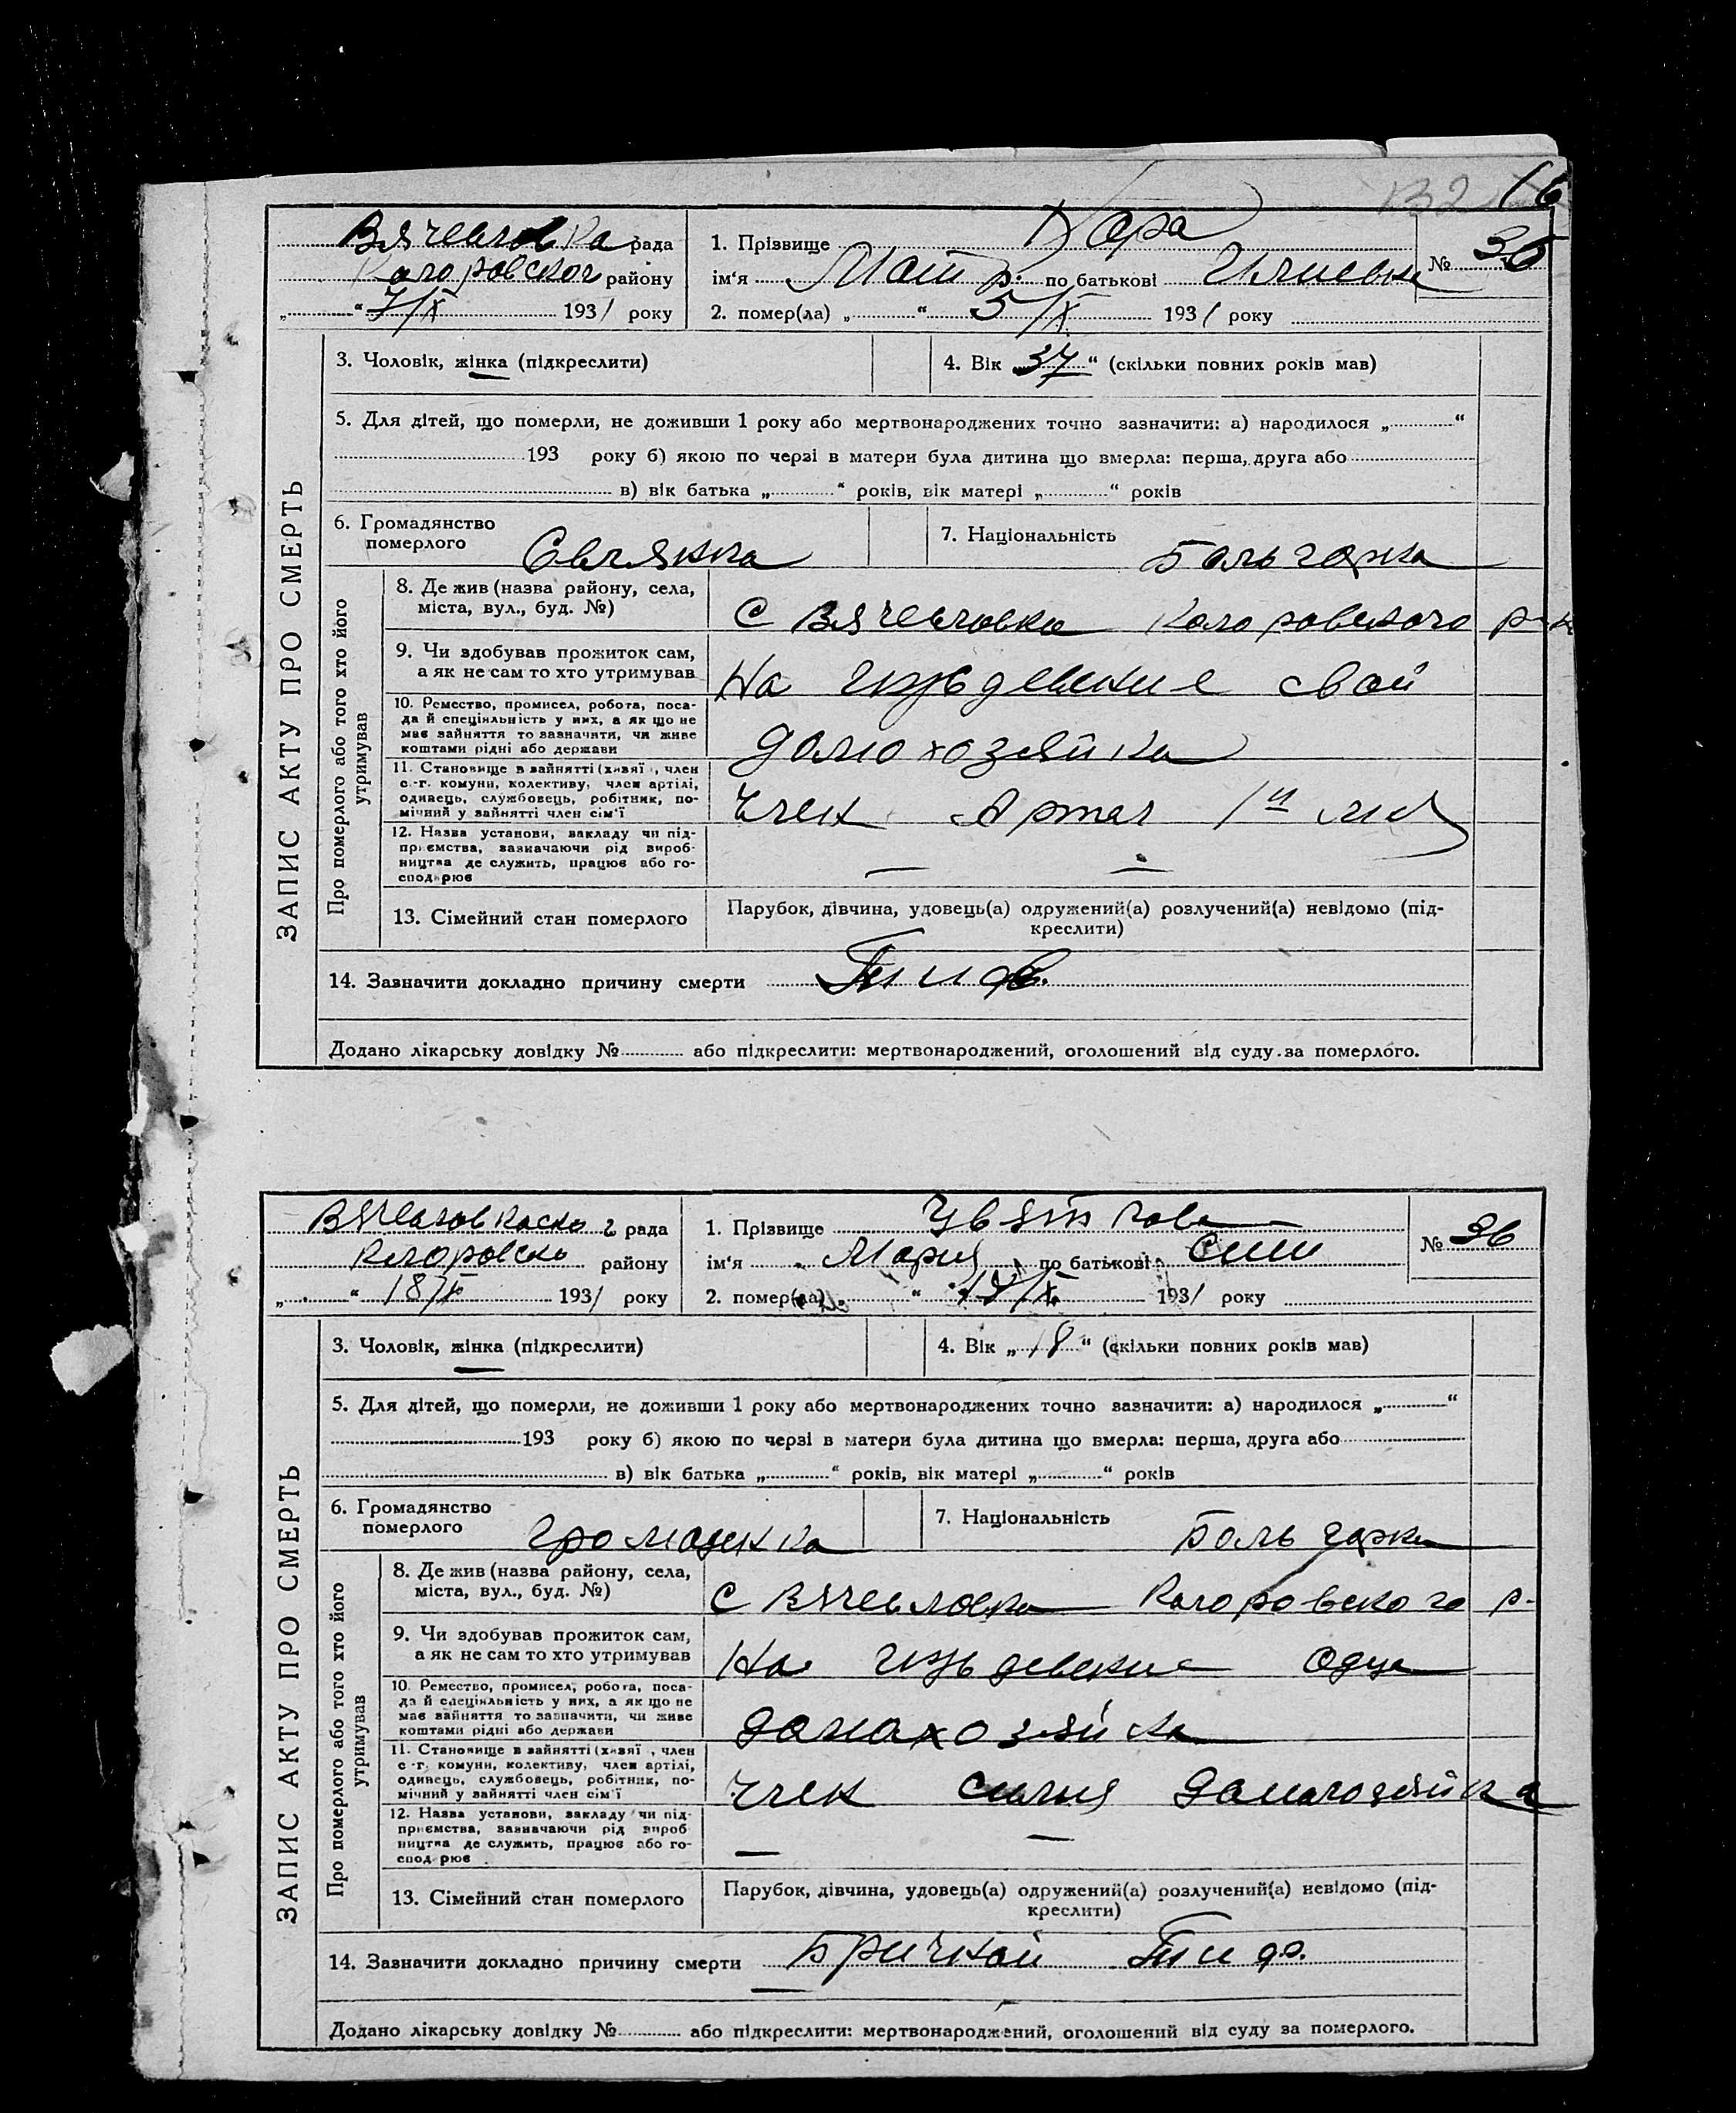 16
Вячеславка рада
району
„ “ 7/X 1931 року
1. Прізвище Кара
№ 35
ім‘я Матр. по батькові
2. помер(ла) „ “ 5/X 1931 року
ЗАПИС АКТУ ПРО СМЕРТЬ
3. Чоловік, жінка (підкреслити)
4. Вік 37 “ (скільки повних років мав)
5. Для дітей, що померли, не доживши 1 року або мертвонароджених точно зазначити: а) народилося „ “
193 року б) якою по черзі в матери була дитина що вмерла: перша, друга або
в) вік батька „ “ років, вік матері „ “ років
6. Громадянство
померлого
7. Національність Больгарка
Про померлого або того хто його
утримував
8. Де жив (назва району, села,
міста, вул., буд. №)
С Вячеславка р-н
9. Чи здобував прожиток сам,
а як не сам то хто утримував
На иждевение свой
10. Ремество, промисел, робота, поса-
да й спеціяльність у них, а як що не
має зайняття то зазначити, чи живе
коштами рідні або держави
домохозяйка
11. Становище в зайнятті (хазяї , член
с.-г. комуни, колективу, член артілі,
одинець, службовець, робітник, по-
мічний у зайнятті член сім‘ї
член Артел 1й
12. Назва установи, закладу чи під-
приємства, зазначаючи рід вироб-
ництва де служить, працює або го-
сподарює
— —
13. Сімейний стан померлого
Парубок, дівчина, удовець(а) одружений(а) розлучений(а) невідомо (під-
креслити)
14. Зазначити докладно причину смерти Тиф.
Додано лікарську довідку № або підкреслити: мертвонароджений, оголошений від суду за померлого.
рада
району
„ “ 18/X 1931 року
1. Прізвище Цвяткова
№ 36
ім‘я Мария по батькові Сим
2. помер(ла) „ “ 17/X 1931 року
ЗАПИС АКТУ ПРО СМЕРТЬ
3. Чоловік, жінка (підкреслити)
4. Вік „ 18 “ (скільки повних років мав)
5. Для дітей, що померли, не доживши 1 року або мертвонароджених точно зазначити: а) народилося „ “
193 року б) якою по черзі в матери була дитина що вмерла: перша, друга або
в) вік батька „ “ років, вік матері „ “ років
6. Громадянство
померлого
7. Національність Больгарка
Про померлого або того хто його
утримував
8. Де жив (назва району, села,
міста, вул., буд. №)
С Вячеславка р-
9. Чи здобував прожиток сам,
а як не сам то хто утримував
На иждевение одца
10. Ремество, промисел, робота, поса-
да й спеціяльність у них, а як що не
має зайняття то зазначити, чи живе
коштами рідні або держави
домахозяйка
11. Становище в зайнятті (хазяї , член
с.-г. комуни, колективу, член артілі,
одинець, службовець, робітник, по-
мічний у зайнятті член сім‘ї
член семя
12. Назва установи, закладу чи під-
приємства, зазначаючи рід вироб
ництва де служить, працює або го-
сподарює
— —
13. Сімейний стан померлого
Парубок, дівчина, удовець(а) одружений(а) розлучений(а) невідомо (під-
креслити)
14. Зазначити докладно причину смерти Бричной Тиф.
Додано лікарську довідку № або підкреслити: мертвонароджений, оголошений від суду за померлого.